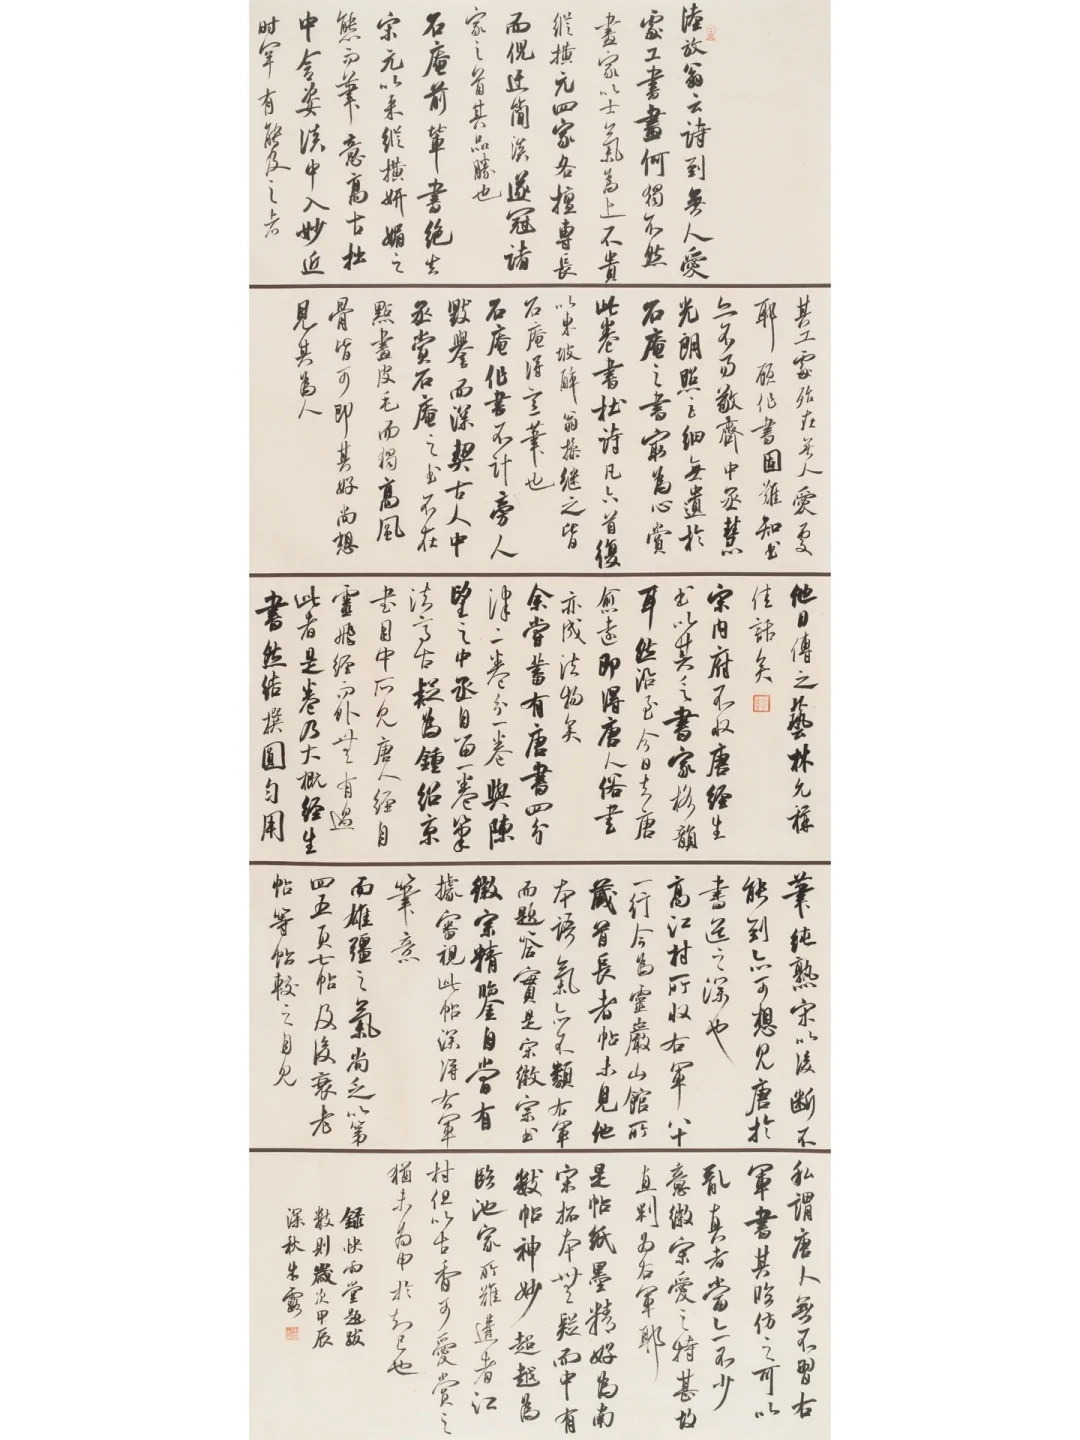 陸放翁云詩到無人愛
處工書畫何獨不然
畫家以士氣為上不貴
縱橫元四家各擅專長
而倪迂簡淡遂冠諸
家之首其品勝也
石庵前輩書絕去
宋元以來縱橫妍媚之
態而筆意高古拙
中含姿淡中入妙近
时罕有能及之者
其工處殆在無人愛處
耶 顧作書固難知書
亦不易敬齋中丞慧
光朗照之細無遺於
石庵之書寂為心賞
此卷書杜詩凡六首復
以東坡醉翁操继之皆
石庵得意筆也
石庵作書不计旁人
毀譽而深契古人中
丞賞石庵之书不在
點畫皮毛而獨高風
骨皆可即其好尚想
見其為人
他日傳之藝林允稱
佳話矣
宋内府不收唐經生
书以其乏書家格韻
耳然沿至今日去唐
愈遠即得唐人俗書
亦成法物矣
余嘗蓄有唐書四分
律二卷分一卷與陳
望之中丞自留一卷筆
法高古疑為鍾紹京
书目中所见唐人經自
靈飛經而外無有過
此者是卷乃大概經生
書然结撰圓勻用
筆純熟宋以後断不
能到亦可想见唐於
書道之深也
高江村所收右軍八十
一行今為靈巖山館所
藏首長者帖未見他
本語氣亦不類右軍
而題答實是宋徽宗书
徽宗精鑒自當有
據審視此帖深得右軍
筆意
而雄疆之氣尚乏以第
四五頁七帖及後衰老
帖等帖較之自见
私謂唐人無不習右
軍書其臨仿之可以
亂真者當亦不少
意徽宗愛之特甚故
直判为右軍耶
是帖紙墨精好為南
宋拓本無疑而中有
數帖神妙超越為
臨池家所難遺者江
村但以古香可愛賞之
猶未为申於知己也
錄快雨堂題跋
數則歲次甲辰
深秋朱露